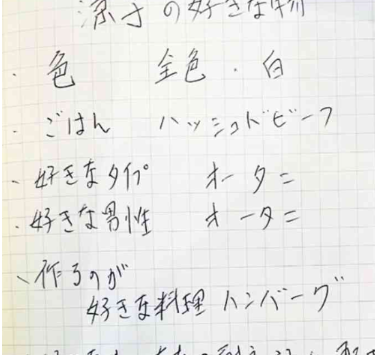 涼子の好きな物
・色 金色・白
・ごはん ハッシュドビーフ
・好きなタイプ オータニ
・好きな男性 オータニ
・作るのが
好きな料理 ハンバーグ